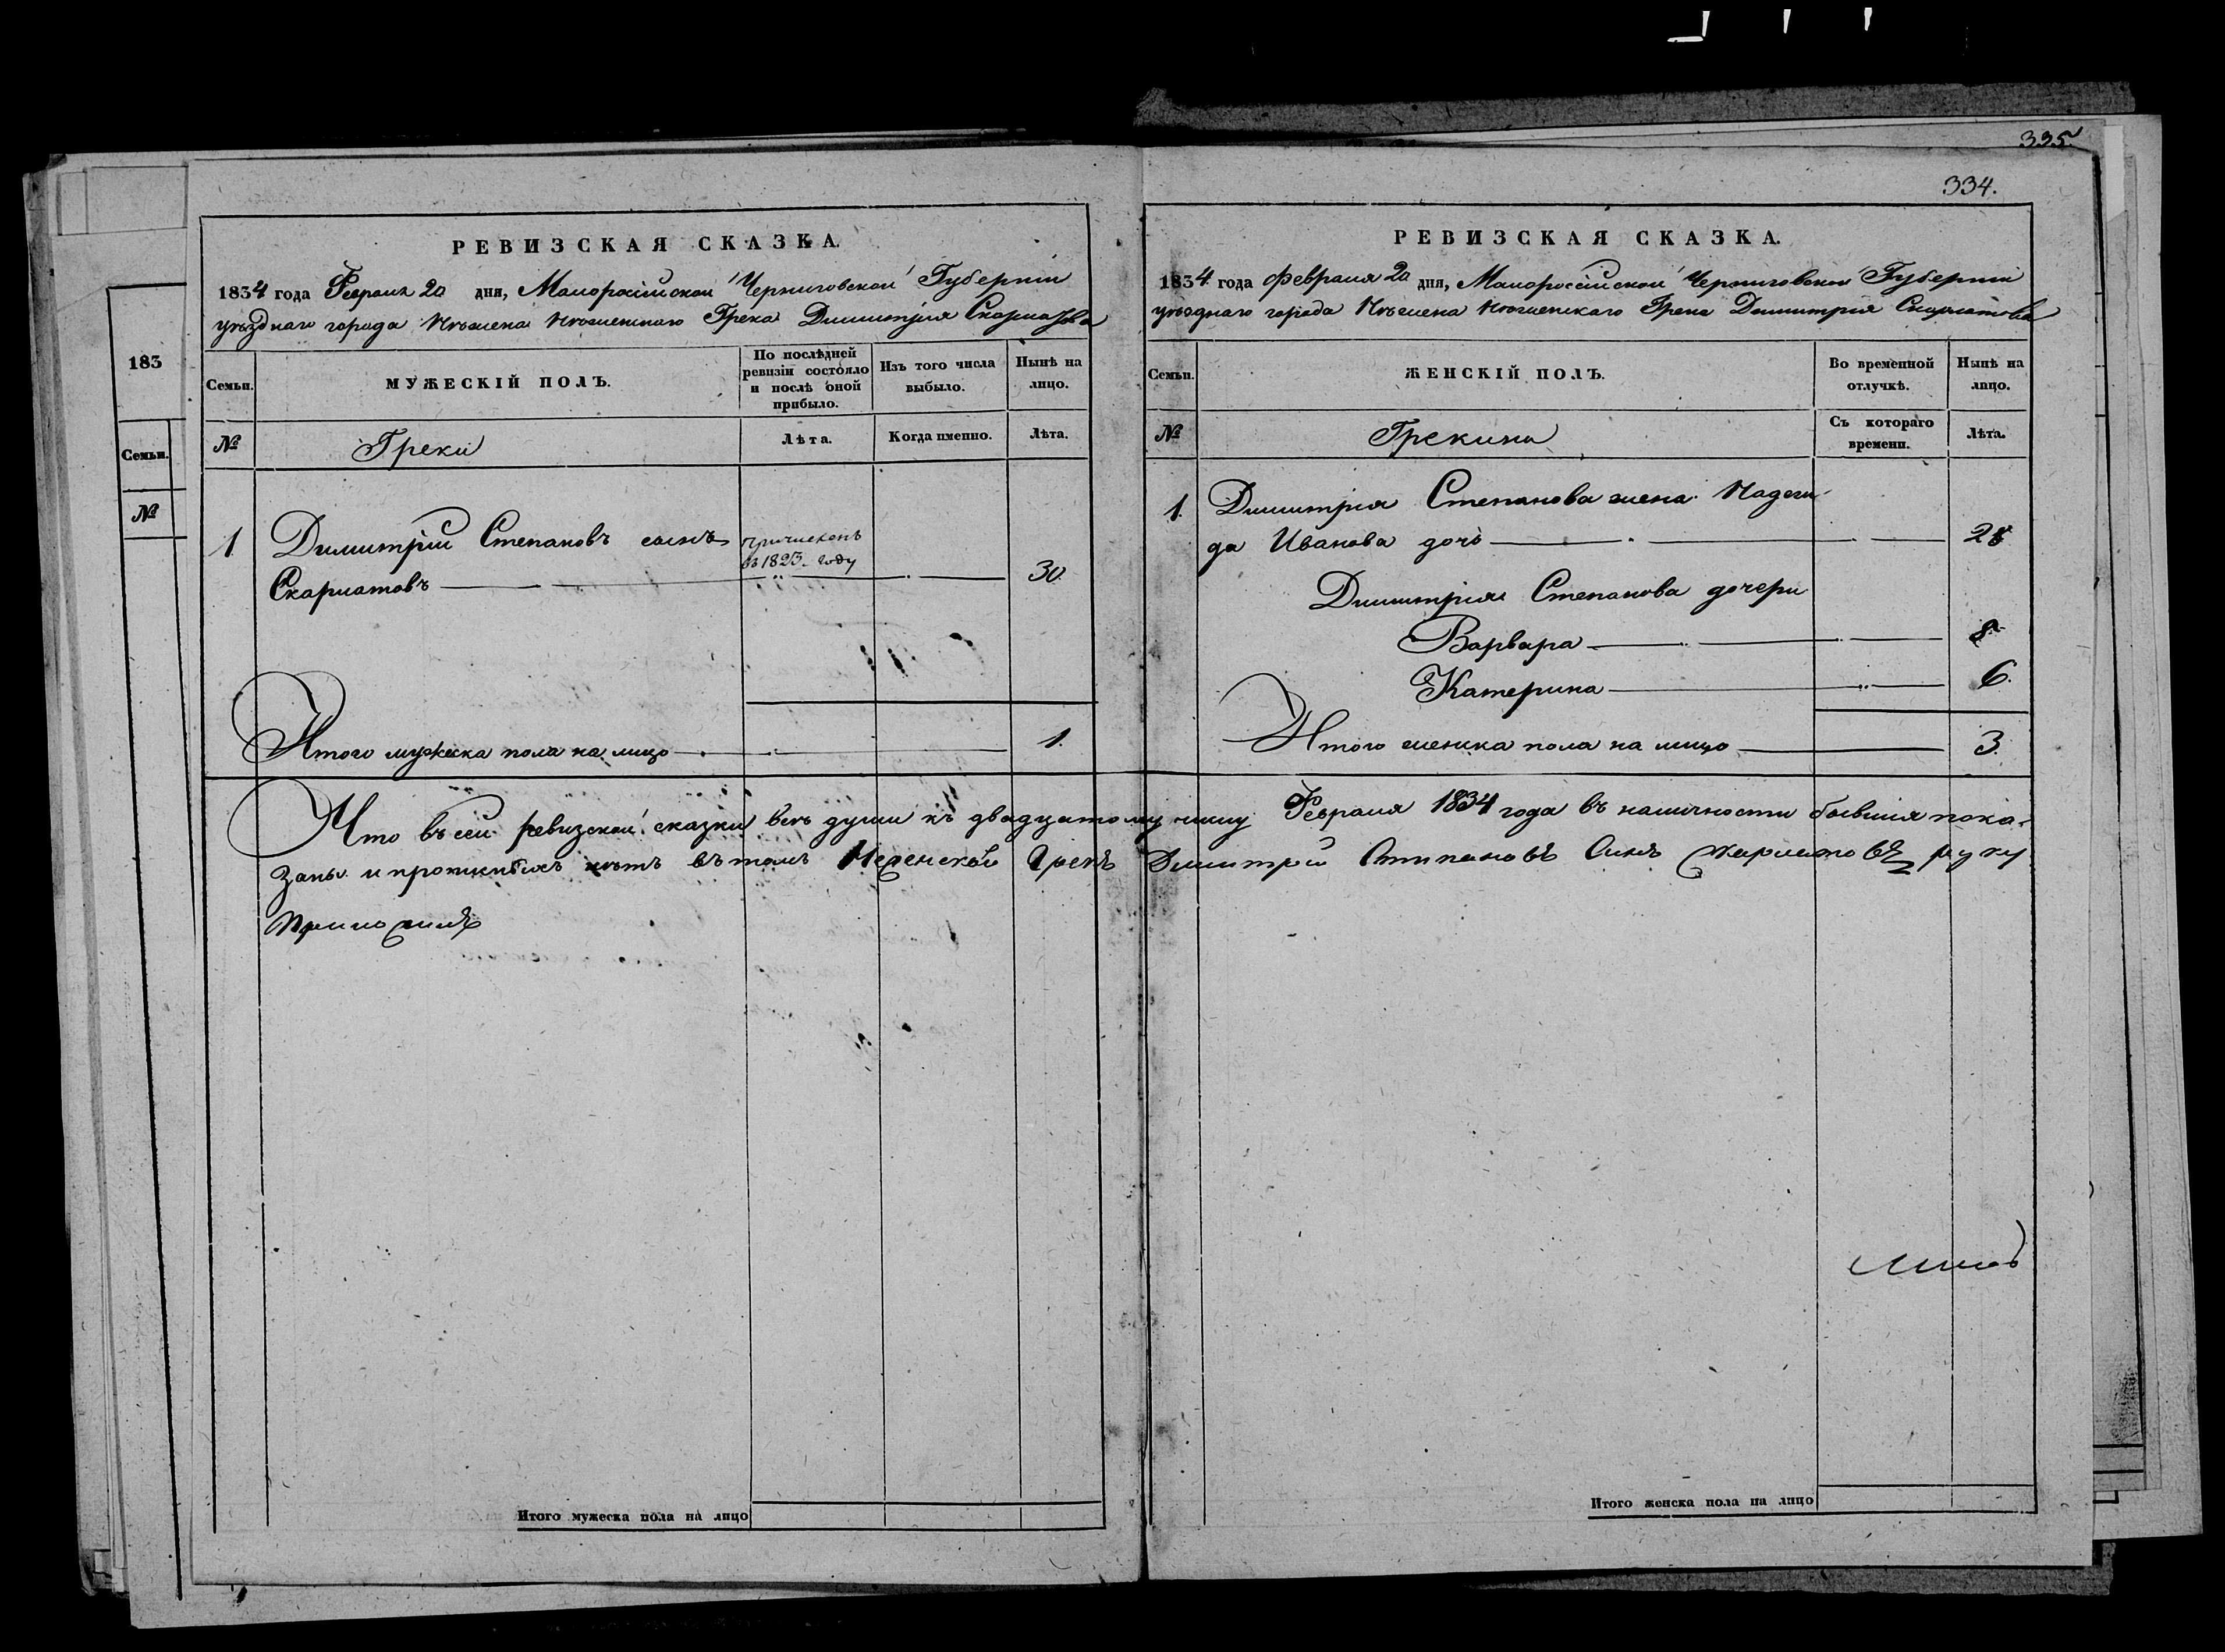 335
334.
РЕВИЗСКАЯ СКАЗКА.
1834 года Февраля 20 дня, Малороссійской Черниговской Губерніи
уѣзднаго города Нѣжина Нѣжинскаго Грека Димитрія Скарлатова
Семьи. МУЖЕСКІЙ ПОЛЪ. По послѣдней ревизіи состояло и послѣ оной прибыло. Изъ того числа выбыло. Нынѣ на лицо.
№ Греки Лѣта. Когда именно. Лѣта.
1 Димитрій Степановъ сынъ причисленъ въ 1823 году
Скарлатовъ 30.
Итого мужеска пола на лицо 1.
РЕВИЗСКАЯ СКАЗКА.
1834 года Февраля 20 дня, Малороссійской Черниговской Губерніи
уѣзднаго города Нѣжина Нѣжинскаго Грека Димитрія Скарлатова
Семьи. ЖЕНСКІЙ ПОЛЪ. Во временной отлучкѣ. Нынѣ на лицо.
№ Грекини Съ котораго времени. Лѣта.
1. Димитрія Степанова жена Надеж-
да Иванова дочь
Димитрія Степанова дочери
Варвара 8.
Катерина 6.
Итого женска пола на лицо 3.
Что въ сей ревизской сказки всѣ души къ двадцатому числу Февраля 1834 года въ наличности бывшія пока-
заны и прописныхъ нѣтъ въ томъ Неженской Грекъ Димитрій Стипановъ Синъ Скарлатовъ руку
приложилъ
183
Семьи.
№
Итого мужеска пола на лицо
Итого женска пола на лицо